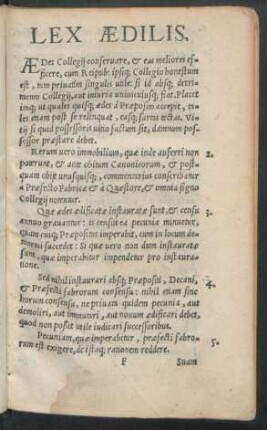 LEX ÆDILIS.
ÆDes Collegij conseruare, & eas meliores ef-
ficere, cum Reipub. ipsiq; Collegio honestum
est, tum priuatim singulis utile: si id absq; detri-
mento Collegij, aut iniuria uniuscuiusq; fiat. Placet
inq; ut quales quisq; ædes à Præposito accepit, ta-
les etiam post se relinquat, easq; sartas tectas. Vi-
tij si quid possessoris uitio factum sit, damnum pos-
sessor præstare debet.
Rerum uero immobilium, quæ inde auferri non 2.
poterunt, & ante obitum Canonicorum, & post-
quam obijt unusquisq;, commentarius conscribatur
à Præfecto Fabricæ & Quæstore, & omnia signo
Collegij notentur.
Quæ ædes ædificatæ instauratæ sunt, & censu 3.
annuo grauantur: is census ea pecunia minuetur,
quam cuiq; Præpositus imperabit, cum in locum de-
mortui succedet: Si quæ uero non dum instauratæ
sunt, quæ imperabitur impendetur pro instaura-
tione.
Sed nihil instaurari absq; Præpositi, Decani, 4.
& Præfecti fabrorum consensu: nihil etiam sine
horum consensu, ne priuati quidem pecunia, aut
demoliri, aut immutari, aut nouum ædificari debet,
quod non possit utile iudicari successoribus.
Pecuniam, quæ imperabitur, præfecti fabro- 5.
rum est exigere, de istaq; rationem reddere.
F Suam